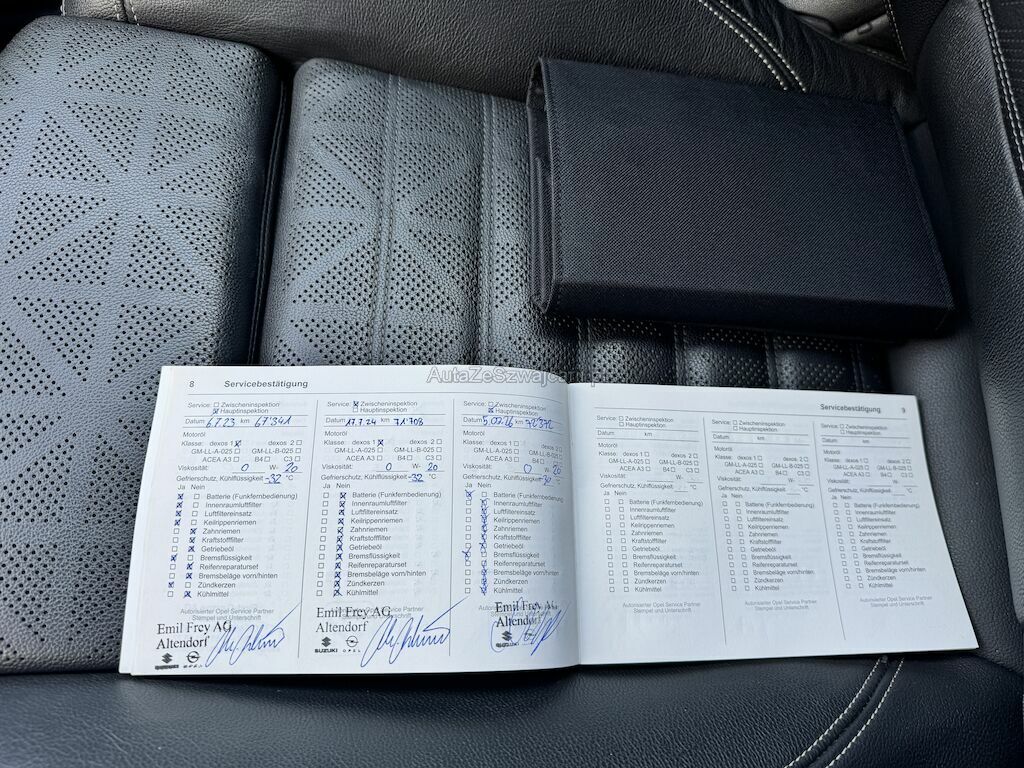 AutaZeSzwajcarii.p
8 Servicebestätigung
Service: Zwischeninspektion
Hauptinspektion
Datum 6.7.23 km 67'341
Motoröl
Klasse: dexos 1 dexos 2
GM-LL-A-025 GM-LL-B-025
ACEA A3 B4 C3
Viskosität: 0 W- 20
Gefrierschutz, Kühlflüssigkeit -32 °C
Ja Nein
Batterie (Funkfernbedienung)
Innenraumluftfilter
Luftfiltereinsatz
Keilrippenriemen
Zahnriemen
Kraftstofffilter
Getriebeöl
Bremsflüssigkeit
Reifenreparaturset
Bremsbeläge vorn/hinten
Zündkerzen
Kühlmittel
Autorisierter Opel Service Partner
Stempel und Unterschrift
Emil Frey AG
Altendorf
SUZUKI OPEL
Service: Zwischeninspektion
Hauptinspektion
Datum 17.7.24 km 71'708
Motoröl
Klasse: dexos 1 dexos 2
GM-LL-A-025 GM-LL-B-025
ACEA A3 B4 C3
Viskosität: 0 W- 20
Gefrierschutz, Kühlflüssigkeit -32 °C
Ja Nein
Batterie (Funkfernbedienung)
Innenraumluftfilter
Luftfiltereinsatz
Keilrippenriemen
Zahnriemen
Kraftstofffilter
Getriebeöl
Bremsflüssigkeit
Reifenreparaturset
Bremsbeläge vorn/hinten
Zündkerzen
Kühlmittel
Autorisierter Opel Service Partner
Stempel und Unterschrift
Emil Frey AG
Altendorf
SUZUKI OPEL
Service: Zwischeninspektion
Hauptinspektion
Datum km
Motoröl
Klasse: dexos 1 dexos 2
GM-LL-A-025 GM-LL-B-025
ACEA A3 B4 C3
Viskosität: 0 W- 20
Gefrierschutz, Kühlflüssigkeit -32 °C
Ja Nein
Batterie (Funkfernbedienung)
Innenraumluftfilter
Luftfiltereinsatz
Keilrippenriemen
Zahnriemen
Kraftstofffilter
Getriebeöl
Bremsflüssigkeit
Reifenreparaturset
Bremsbeläge vorn/hinten
Zündkerzen
Kühlmittel
Emil Frey AG
Altendorf
SUZUKI
Servicebestätigung 9
Service: Zwischeninspektion
Hauptinspektion
Datum km
Motoröl
Klasse: dexos 1 dexos 2
GM-LL-A-025 GM-LL-B-025
ACEA A3 B4 C3
Viskosität: W-
Gefrierschutz, Kühlflüssigkeit °C
Ja Nein
Batterie (Funkfernbedienung)
Innenraumluftfilter
Luftfiltereinsatz
Keilrippenriemen
Zahnriemen
Kraftstofffilter
Getriebeöl
Bremsflüssigkeit
Reifenreparaturset
Bremsbeläge vorn/hinten
Zündkerzen
Kühlmittel
Autorisierter Opel Service Partner
Stempel und Unterschrift
Service: Zwischeninspektion
Hauptinspektion
Datum km
Motoröl
Klasse: dexos 1 dexos 2
GM-LL-A-025 GM-LL-B-025
ACEA A3 B4 C3
Viskosität: W-
Gefrierschutz, Kühlflüssigkeit °C
Ja Nein
Batterie (Funkfernbedienung)
Innenraumluftfilter
Luftfiltereinsatz
Keilrippenriemen
Zahnriemen
Kraftstofffilter
Getriebeöl
Bremsflüssigkeit
Reifenreparaturset
Bremsbeläge vorn/hinten
Zündkerzen
Kühlmittel
Autorisierter Opel Service Partner
Stempel und Unterschrift
Service: Zwischeninspektion
Hauptinspektion
Datum km
Motoröl
Klasse: dexos 1 dexos 2
GM-LL-A-025 GM-LL-B-025
ACEA A3 B4 C3
Viskosität: W-
Gefrierschutz, Kühlflüssigkeit °C
Ja Nein
Batterie (Funkfernbedienung)
Innenraumluftfilter
Luftfiltereinsatz
Keilrippenriemen
Zahnriemen
Kraftstofffilter
Getriebeöl
Bremsflüssigkeit
Reifenreparaturset
Bremsbeläge vorn/hinten
Zündkerzen
Kühlmittel
Autorisierter Opel Service Partner
Stempel und Unterschrift